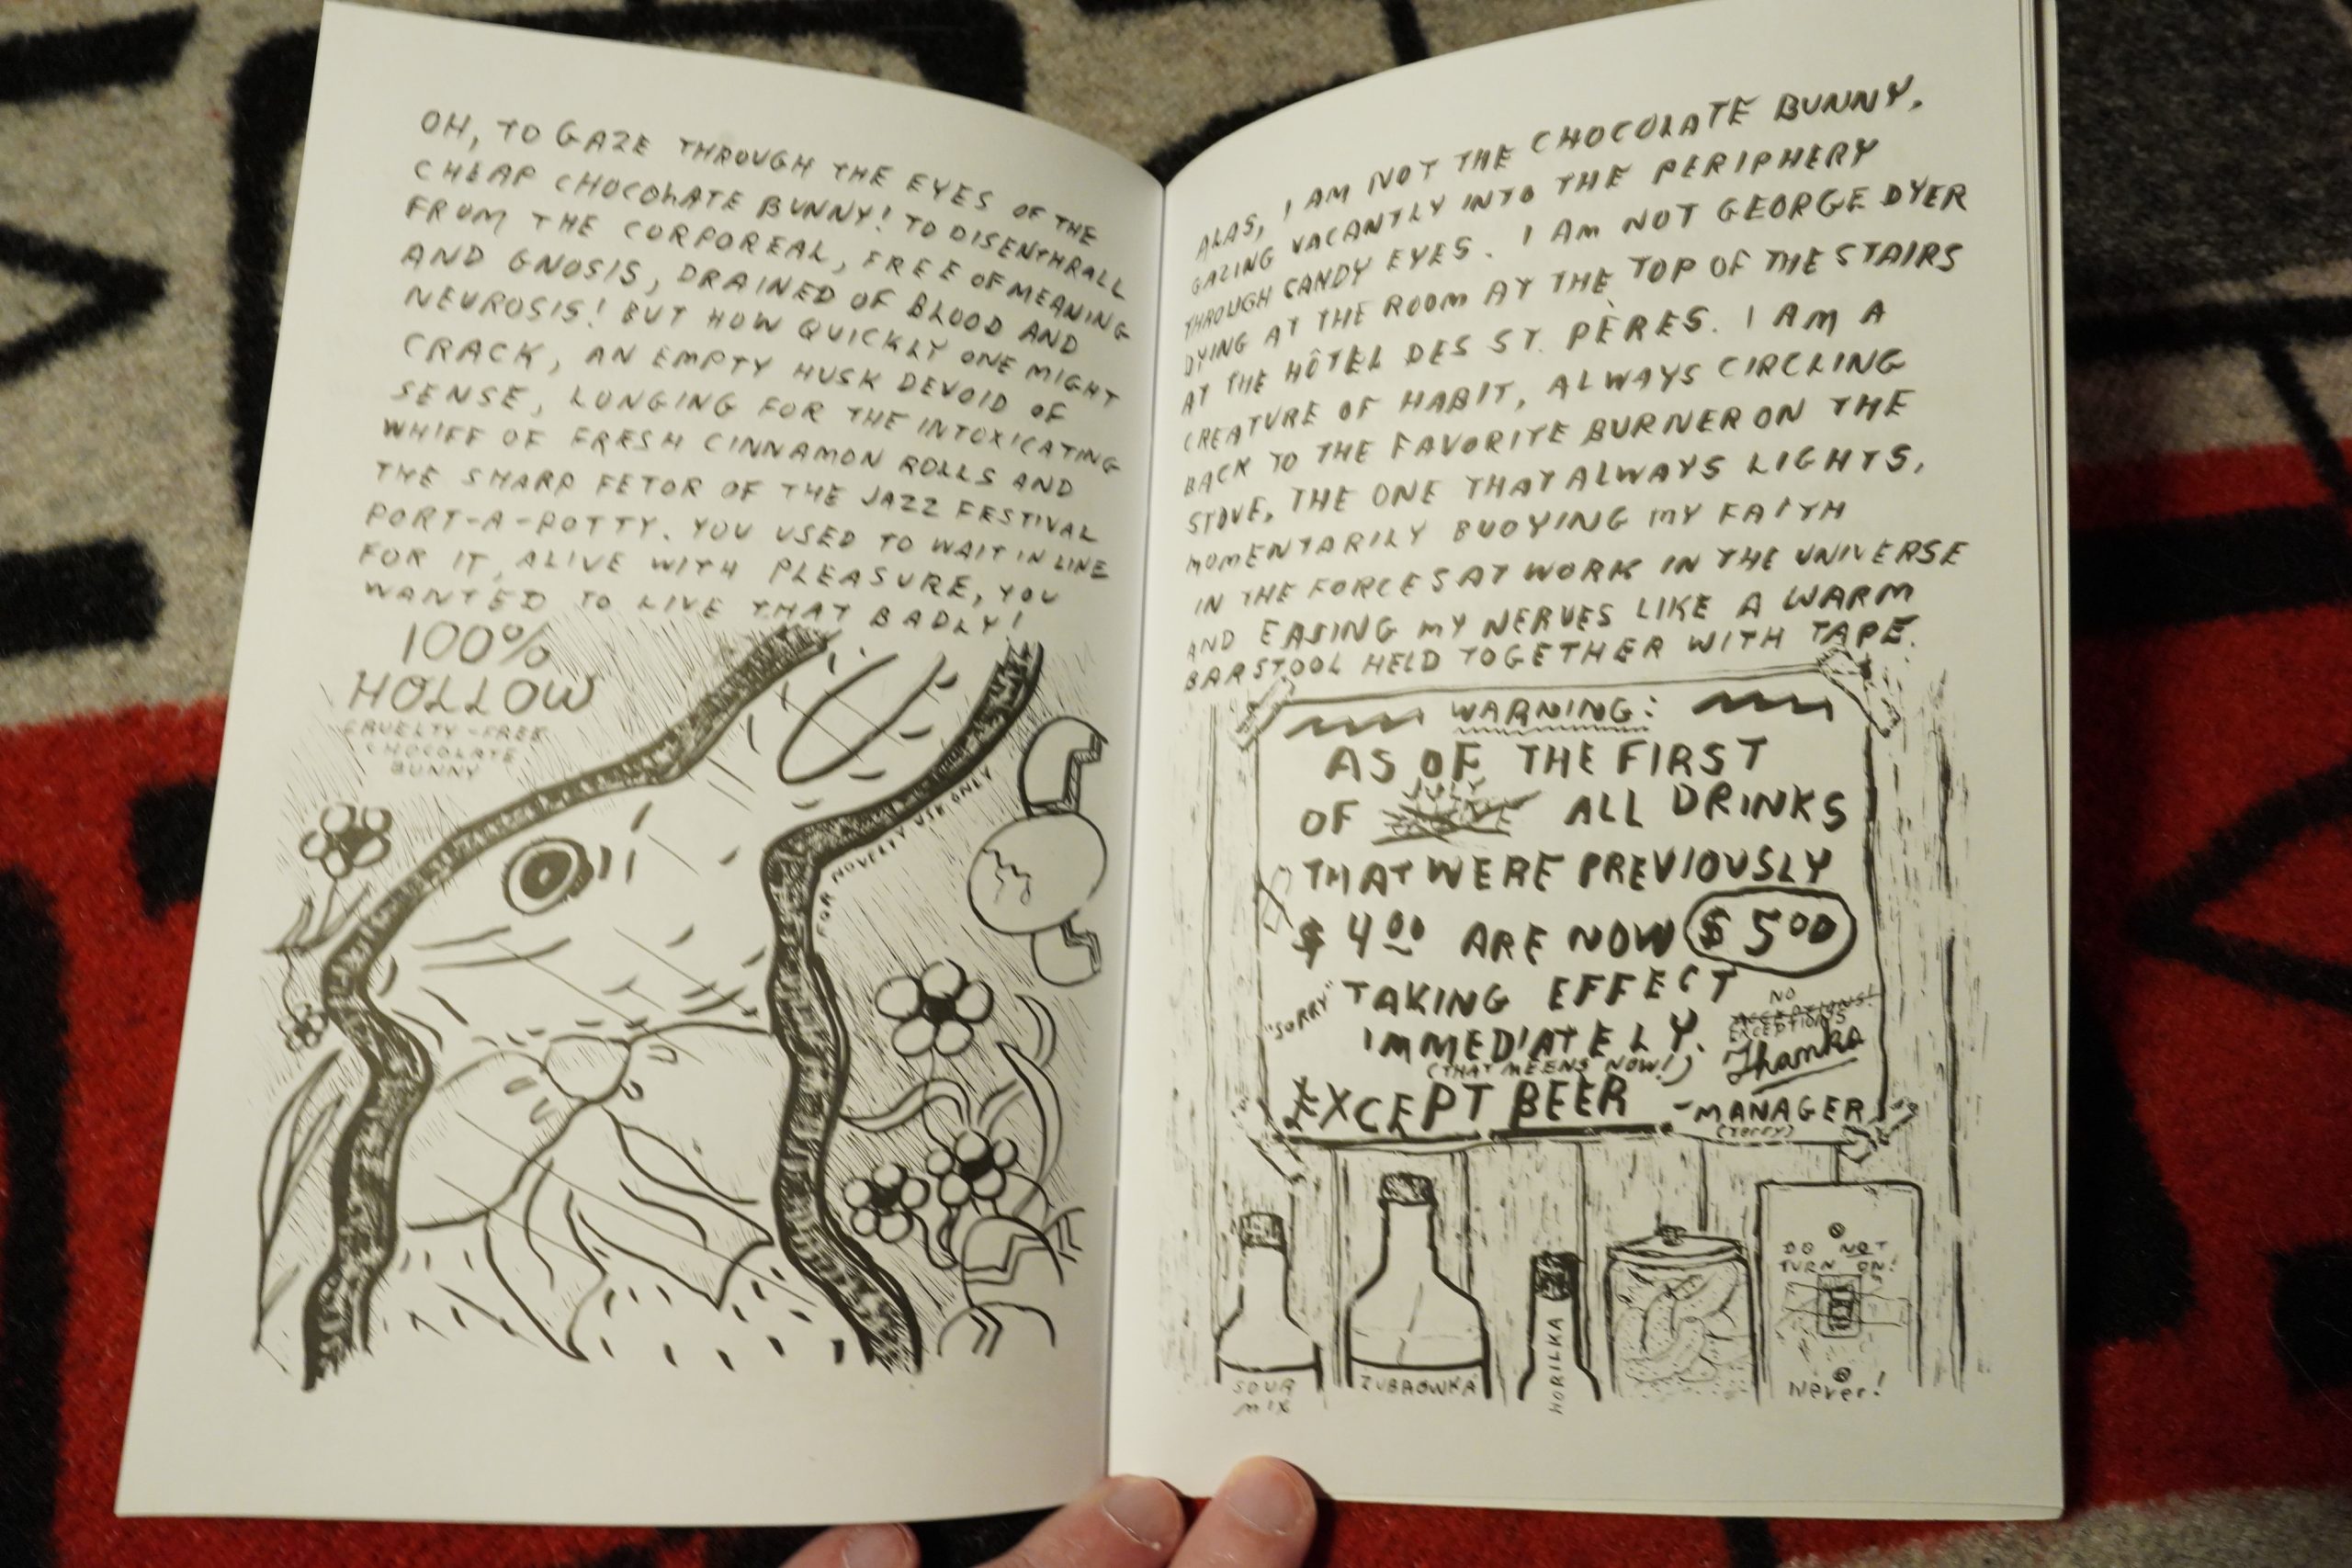 OH, TO GAZE THROUGH THE EYES OF THE
CHEAP CHOCOLATE BUNNY! TO DISENTHRALL
FROM THE CORPOREAL, FREE OF MEANING
AND GNOSIS, DRAINED OF BLOOD AND
NEUROSIS! BUT HOW QUICKLY ONE MIGHT
CRACK, AN EMPTY HUSK DEVOID OF
SENSE, LONGING FOR THE INTOXICATING
WHIFF OF FRESH CINNAMON ROLLS AND
THE SHARP FETOR OF THE JAZZ FESTIVAL
PORT-A-POTTY. YOU USED TO WAIT IN LINE
FOR IT, ALIVE WITH PLEASURE, YOU
WANTED TO LIVE THAT BADLY!
100%
HOLLOW
CRUELTY-FREE
CHOCOLATE
BUNNY
FOR NOVELTY USE ONLY
ALAS, I AM NOT THE CHOCOLATE BUNNY,
GAZING VACANTLY INTO THE PERIPHERY
THROUGH CANDY EYES. I AM NOT GEORGE DYER
DYING AT THE ROOM AT THE TOP OF THE STAIRS
AT THE HÔTEL DES ST. PÈRES. I AM A
CREATURE OF HABIT, ALWAYS CIRCLING
BACK TO THE FAVORITE BURNER ON THE
STOVE, THE ONE THAT ALWAYS LIGHTS,
MOMENTARILY BUOYING MY FAITH
IN THE FORCES AT WORK IN THE UNIVERSE
AND EASING MY NERVES LIKE A WARM
BARSTOOL HELD TOGETHER WITH TAPE.
WARNING:
AS OF THE FIRST
JULY
OF ALL DRINKS
THAT WERE PREVIOUSLY
$ 4.00 ARE NOW $ 5.00
"SORRY" TAKING EFFECT
IMMEDIATELY.
(THAT MEENS NOW!)
NO
ACCEPTIONS!
EXCEPTIONS
Thanks
EXCEPT BEER -MANAGER
SOUR
MIX
ZUBROWKA
HORILKA
DO NOT
TURN ON!
Never!